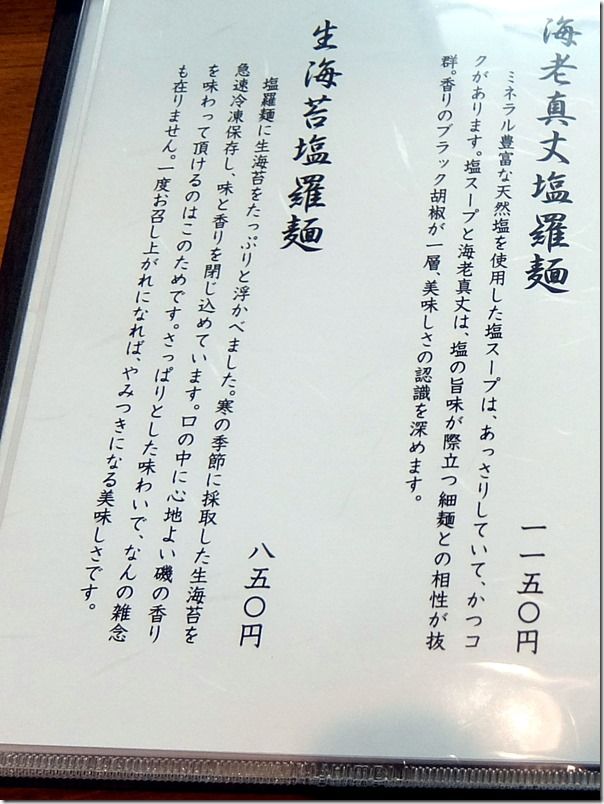 海老真丈塩羅麺
ミネラル豊富な天然塩を使用した塩スープは、あっさりしていて、かつコ
クがあります。塩スープと海老真丈は、塩の旨味が際立つ細麺との相性が抜
群。香りのブラック胡椒が一層、美味しさの認識を深めます。
一一五〇円
生海苔塩羅麺
塩羅麺に生海苔をたっぷりと浮かべました。寒の季節に採取した生海苔を
急速冷凍保存し、味と香りを閉じ込めています。口の中に心地よい磯の香り
を味わって頂けるのはこのためです。さっぱりとした味わいで、なんの雑念
も在りません。一度お召し上がれになれば、やみつきになる美味しさです。
八五〇円